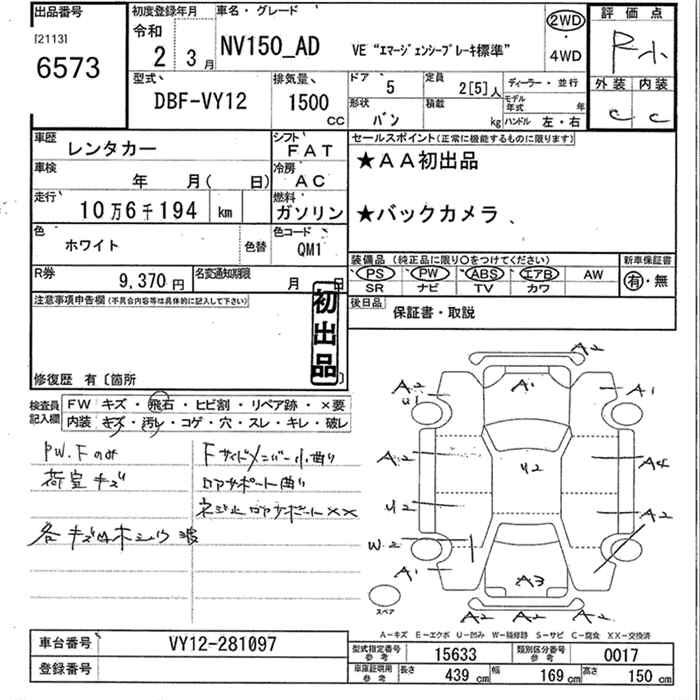 出品番号
[2113]
6573
初度登録年月
令和
2 3月
車名・グレード
NV150_AD VE “エマージェンシーブレーキ標準”
2WD
・
4WD
評価点
R 小
外装 内装
C C
型式
DBF-VY12
排気量
1500
CC
ドア 5
定員 2[5]人
形状 バン
積載 kg
ディーラー・並行
モデル年式 年
ハンドル 左・右
車歴 レンタカー
シフト FAT
車検 年 月( 日)
冷房 AC
走行 10万6千194 km
燃料 ガソリン
色 ホワイト
色替
色コード QM1
R券 9,370円
名変通知期限 月 日
セールスポイント(正常に機能するものに限ります)
★AA初出品
★バックカメラ
装備品 (純正品に限り○をつけてください)
新車保証書
PS PW ABS エアB AW
SR ナビ TV カワ
有・無
後日品
保証書・取説
注意事項申告欄(不具合内容等は具体的に記入して下さい)
初出品
修復歴 有〔箇所 〕
検査員記入欄
FW キズ・飛石・ヒビ割・リペア跡・×要
内装・キズ・汚レ・コゲ・穴・スレ・キレ・破レ
PW.Fのみ
荷室キズ
Fサイドメンバー小曲り
ロアサポート曲り
ネジ止ロアサポートXX
A2
A2
U1
A1
A1
A2
U2
A4
U2
A2
W2
A1
A3
A2 A2 A2
スペア
A-キズ E-エクボ U-凹み W-補修跡 S-サビ C-腐食 XX-交換済
車台番号 VY12-281097
登録番号
型式指定番号参考 15633
類別区分番号参考 0017
車庫証明用参考 長さ 439cm 幅 169cm 高さ 150cm